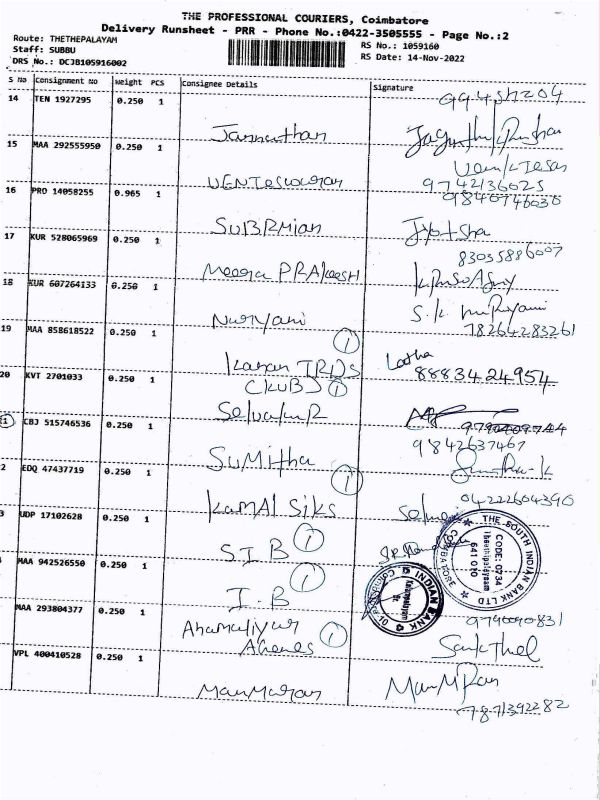 THE PROFESSIONAL COURIERS, Coimbatore
Delivery Runsheet - PRR - Phone No.:0422-3505555 - Page No.:2
Route: THETHEPALAYAM
Staff: SUBBU
DRS No.: DCJB105916002
RS No.: 1059160
RS Date: 14-Nov-2022
S No Consignment No Weight PCS Consignee Details Signature
14 TEN 1927295 0.250 1
Jannathan
15 MAA 292555950 0.250 1
9742136025
16 PRO 14058255 0.965 1
9840746030
SUBRMian Jyotsha
17 KUR 528065969 0.250 1
83055886007
Meera PRAKESH
18 KUR 607264133 0.250 1
Nuryani S.K
78264283261
19 MAA 858618522 0.250 1
1
Kannan TRDS Latha
(KUBS) 1 8883424954
20 KVT 2701033 0.250 1
Selvakur
21 CBJ 515746536 0.250 1
9842637467
SuMitha
2 EDQ 47437719 0.250 1
1
04222604390
KAMAL SIKS
3 UDP 17102628 0.250 1
S.I.B 1
THE SOUTH INDIAN BANK LTD
COIMBATORE
CODE: 0734
Theethipalayam
641 010
MAA 942526550 0.250 1
1
I.B
INDIAN BANK
MAA 293804377 0.250 1
9790090831
1
VPL 400410528 0.250 1
ManMaran ManMRan
7871392282